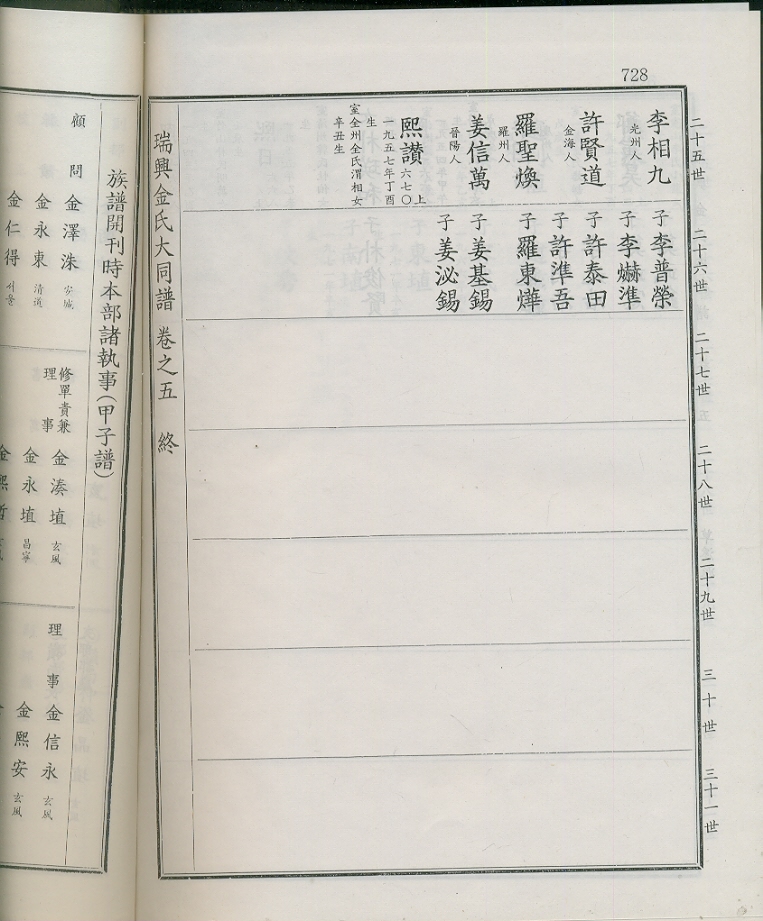 728
二十五世
二十六世
二十七世
二十八世
二十九世
三十世
三十一世
李相九
光州人
子李普榮
子李爀準
許賢道
金海人
子許泰田
子許準吾
羅聖煥
羅州人
子羅東燁
姜信萬
晉陽人
子姜基錫
子姜泌錫
熙讃
六七〇上
一九五七年丁酉
生
室全州全氏渭相女
辛丑生
瑞興金氏大同譜 卷之五 終
族譜開刊時本部諸執事(甲子譜)
顧問
金澤洙 安城
金永東 清道
金仁得 서울
修單責兼
理事
金湊埴 玄風
金永埴 昌寧
理事
金信永 玄風
金熙安 玄風